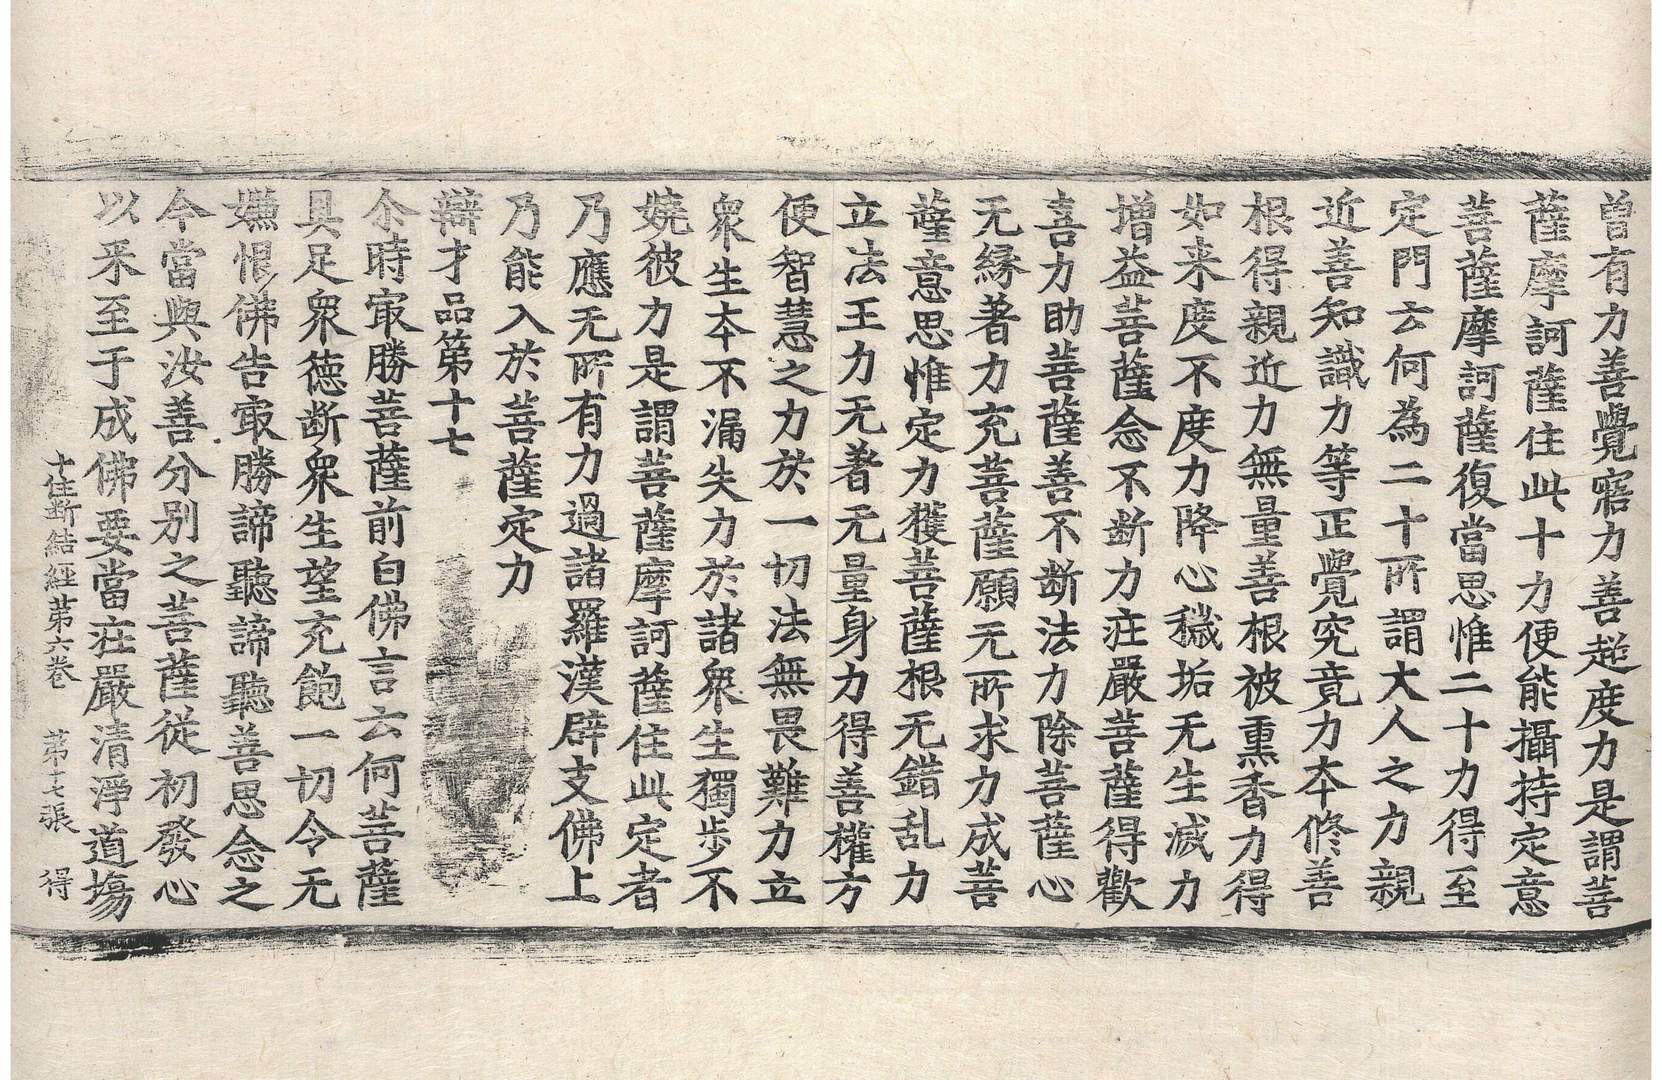 曾有力善覺寤力善趍度力是謂菩
薩摩訶薩住此十力便能攝持定意
菩薩摩訶薩復當思惟二十力得至
定門云何為二十所謂大人之力親
近善知識力等正覺究竟力本修善
根得親近力無量善根被熏香力得
如来度不度力降心穢垢无生滅力
增益菩薩念不断力在嚴菩薩得歡
喜力助菩薩善不断法力除菩薩心
无緣著力充菩薩願无所求力成菩
薩意思惟定力獲菩薩根无錯乱力
立法王力无著无量身力得善權方
便智慧之力於一切法無畏難力立
衆生本不漏失力於諸衆生獨步不
嬈彼力是謂菩薩摩訶薩住此定者
乃應无所有力過諸羅漢辟支佛上
乃能入於菩薩定力
辯才品第十七
尒時㝡勝菩薩前白佛言云何菩薩
具足衆德断衆生望充飽一切令无
嫌恨佛告㝡勝諦聽諦聽善思念之
今當與汝善分别之菩薩從初發心
以来至于成佛要當在嚴清淨道塲
十住断結經第六卷 第十七張 得